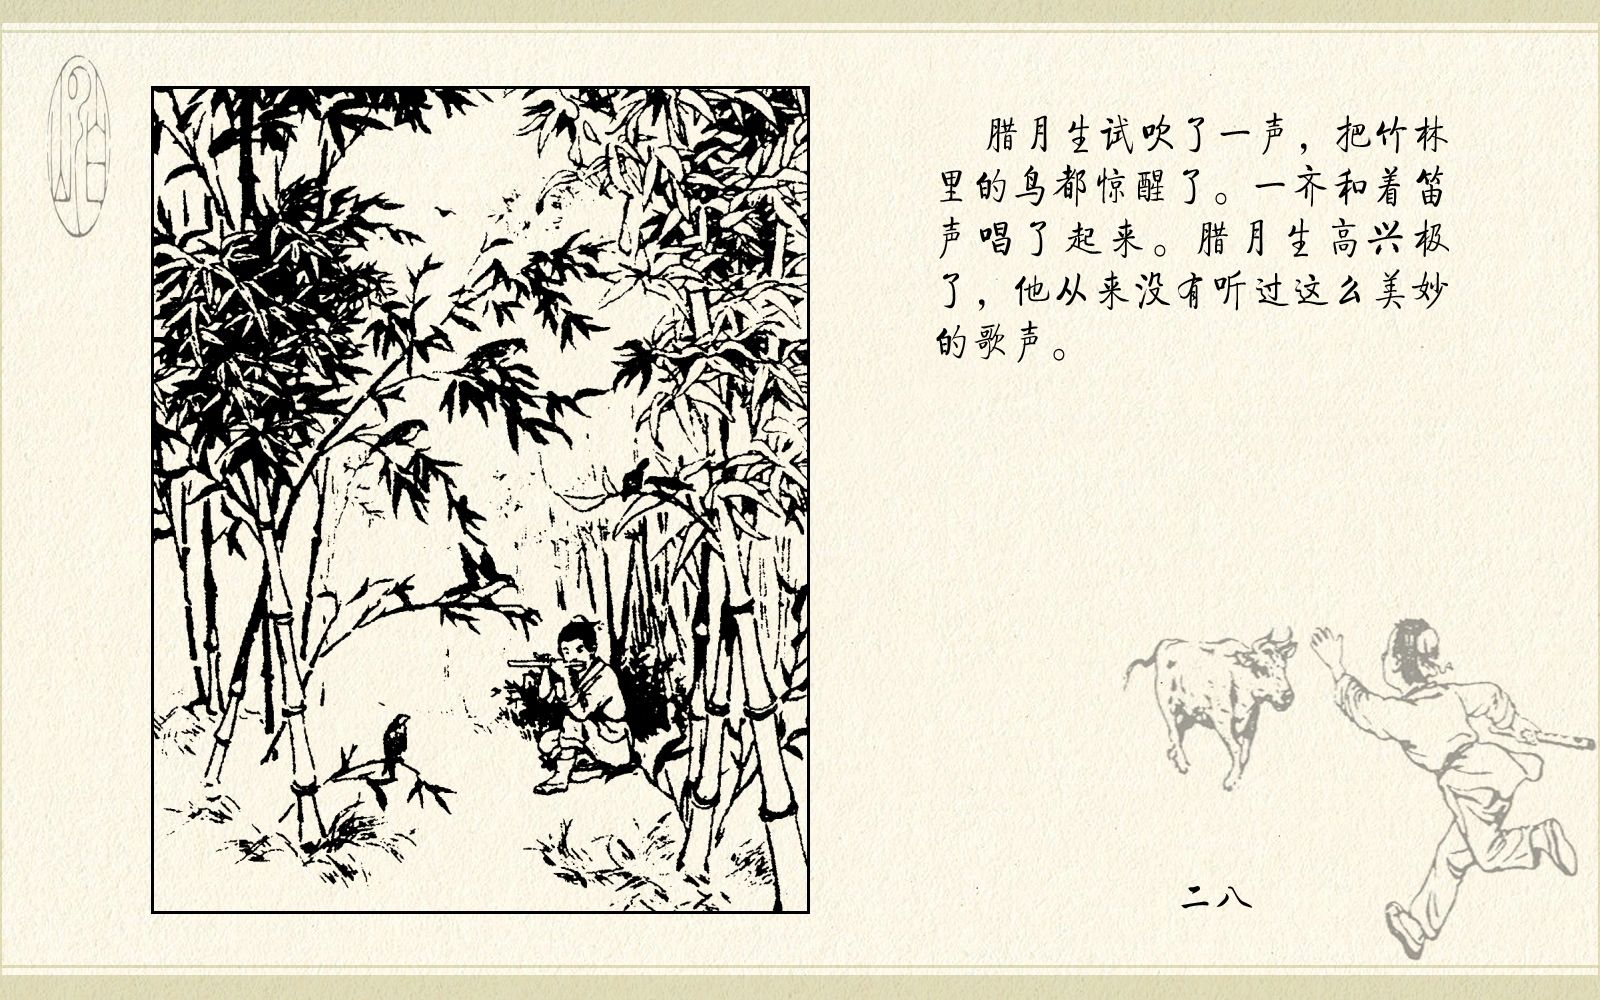 腊月生试吹了一声，把竹林
里的鸟都惊醒了。一齐和着笛
声唱了起来。腊月生高兴极
了，他从来没有听过这么美妙
的歌声。
二八